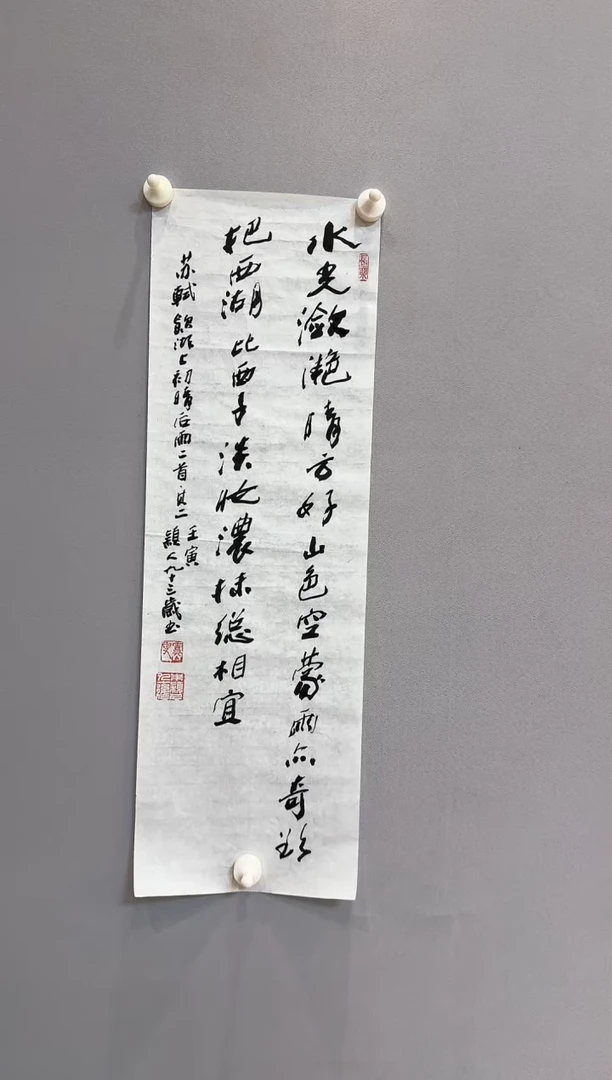 水光潋滟晴方好山色空蒙雨亦奇欲
把西湖比西子淡妆浓抹总相宜
苏轼饮湖上初晴后雨二首其二
壬寅
人九十三岁书